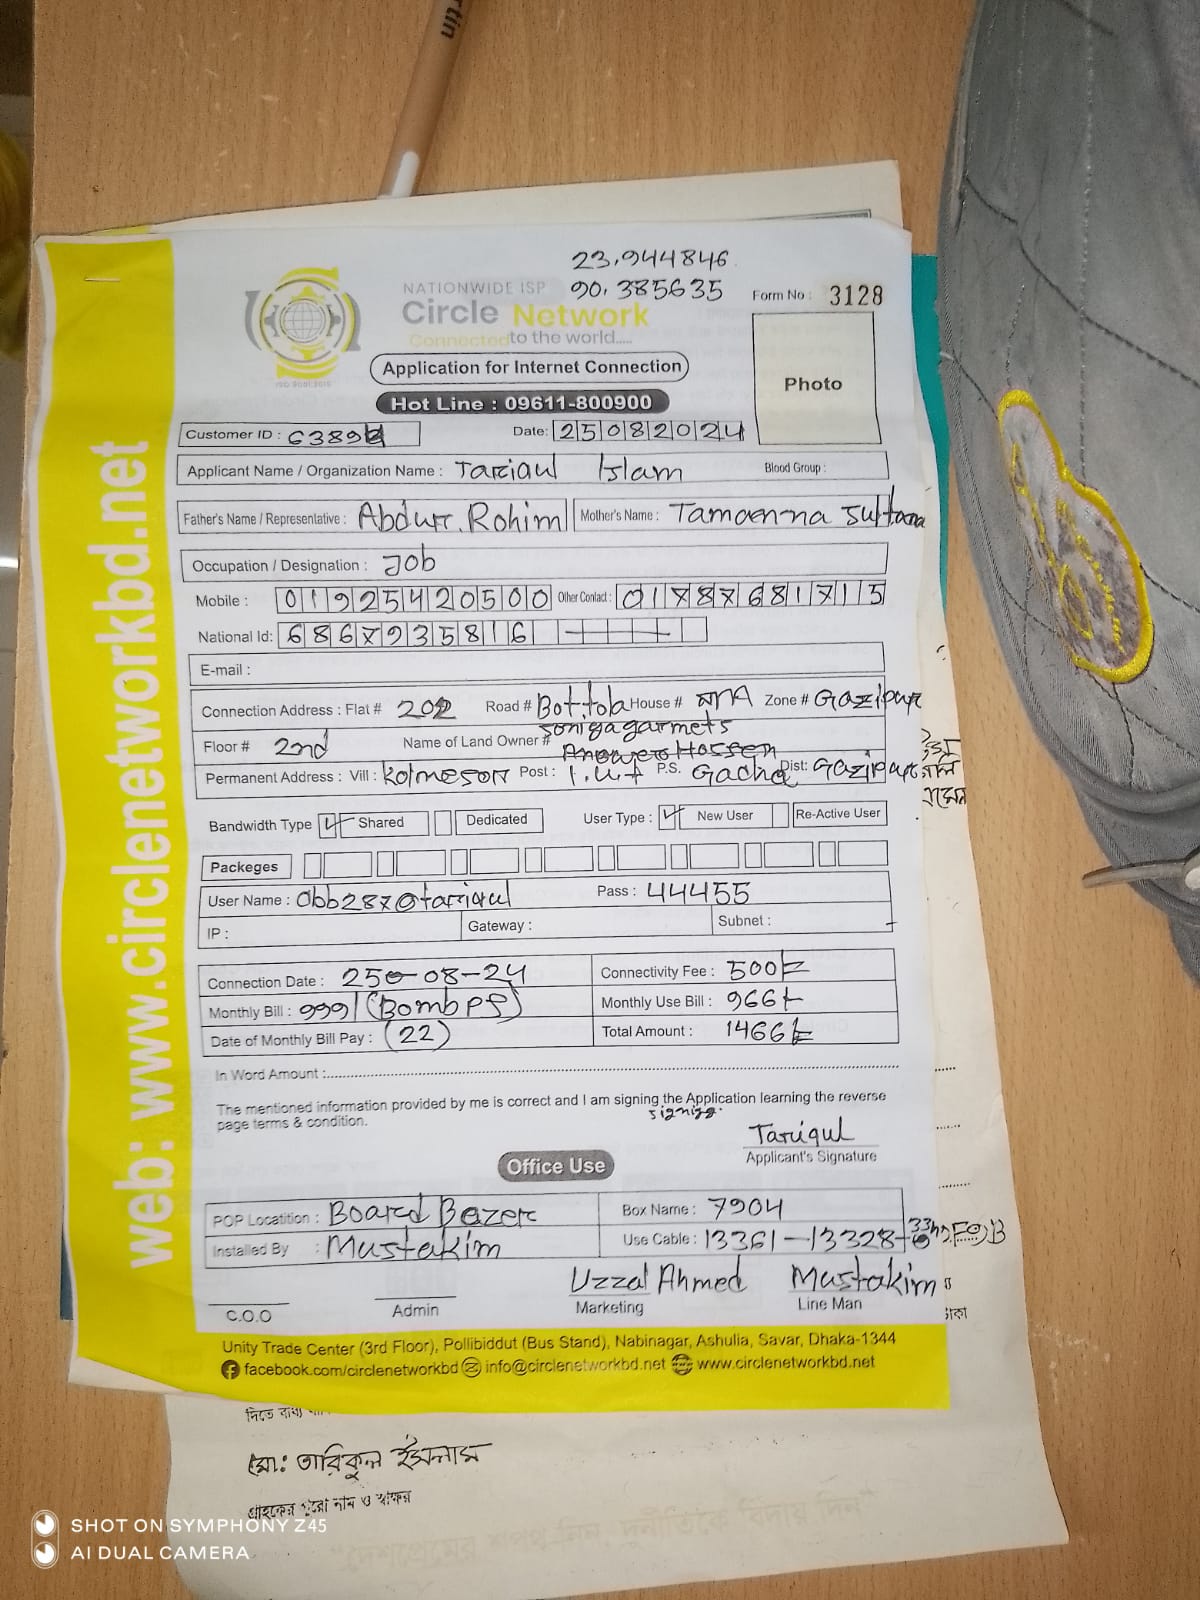 rtin
23.944846
90.385635
NATIONWIDE ISP
Circle Network
Connected to the world.....
Form No : 3128
Photo
ISO 9001:2015
Application for Internet Connection
Hot Line : 09611-800900
Customer ID : 6389
Date: 25082024
Applicant Name / Organization Name : Tariqul Islam Blood Group :
Father's Name / Representative : Abdur. Rohim Mother's Name : Tamaenna Sultana
Occupation / Designation : Job
Mobile : 01925420500 Other Contact : 01787681715
National Id: 6867935816
E-mail :
Connection Address : Flat # 202 Road # Bot.tola House # Zone # Gazipur
soniyagarmets
Floor # 2nd Name of Land Owner # Anower Hossen
Permanent Address : Vill : Kolmesor Post : I.U.T P.S. Gacha Dist: Gazipur
Bandwidth Type Shared Dedicated User Type : New User Re-Active User
Packeges
User Name : Obb287@tariqul Pass : 44455
IP : Gateway : Subnet :
Connection Date : 25-08-24 Connectivity Fee : 500/=
Monthly Bill : 999/ (Bombps) Monthly Use Bill : 966/-
Date of Monthly Bill Pay : (22) Total Amount : 1466/=
In Word Amount :
The mentioned information provided by me is correct and I am signing the Application learning the reverse
page terms & condition.
Tariqul
Applicant's Signature
Office Use
POP Locatition : Board Bazer Box Name : 7904
Installed By : Mustakim Use Cable : 13361-13328
Uzzal Ahmed Mustakim
C.O.O Admin Marketing Line Man
Unity Trade Center (3rd Floor), Pollibiddut (Bus Stand), Nabinagar, Ashulia, Savar, Dhaka-1344
facebook.com/circlenetworkbd info@circlenetworkbd.net www.circlenetworkbd.net
web: www.circlenetworkbd.net
মো: তারিকুল ইসলাম
গ্রাহকের পুরো নাম ও স্বাক্ষর
SHOT ON SYMPHONY Z45
AI DUAL CAMERA